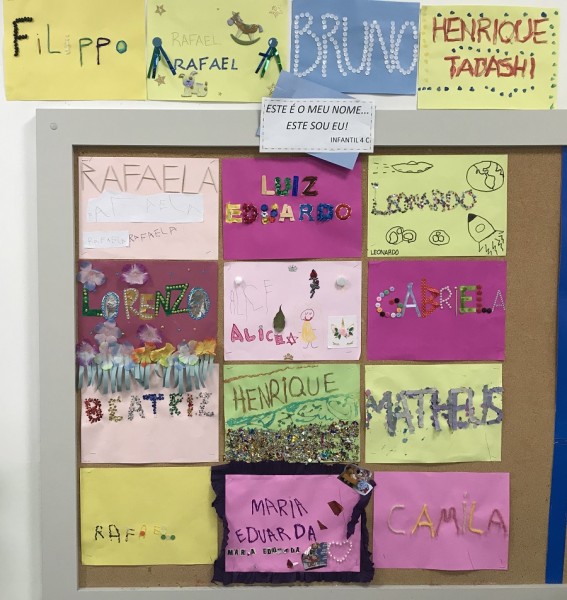 FiLippo
RAFAEL
RAFAEL
BRUNO
HENRIQUE
TADASHI
ESTE É O MEU NOME...
ESTE SOU EU!
INFANTIL 4 C
RAFAELA
RAFAELA
LUIZ
EDUARDO
LEONARDO
LEONARDO
LORENZO
ALICE
ALICE
GABRIELA
BEATRIZ
HENRIQUE
MATHEUS
RAFAEL
MARIA
EDUARDA
MARIA EDUARDA
CAMILA